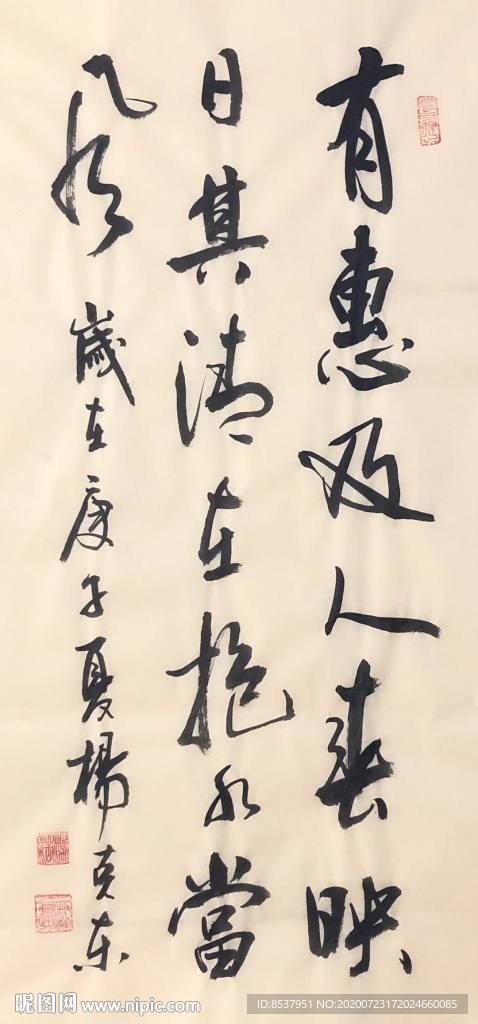 有惠及人春映
日其清在抱水當
風 歲在庚子夏楊克东
昵图网 www.nipic.com
ID:8537951 NO:20200723172024660085